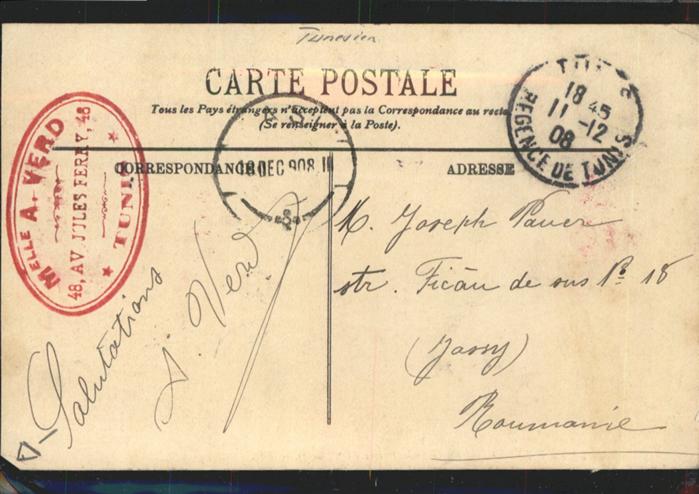 Tunesien
CARTE POSTALE
Tous les Pays étrangers n'acceptent pas la Correspondance au recto
(Se renseigner à la Poste).
CORRESPONDANCE
ADRESSE
MELLE A. VERD
48, AV. JULES FERRY, 48
TUNIS
18 DEC 908
18 45
11 -12
08
REGENCE DE TUNIS
M. Joseph Pauer
str. Ficău de sus No 18
(Jassy)
Roumanie
Salutations
A. Verd